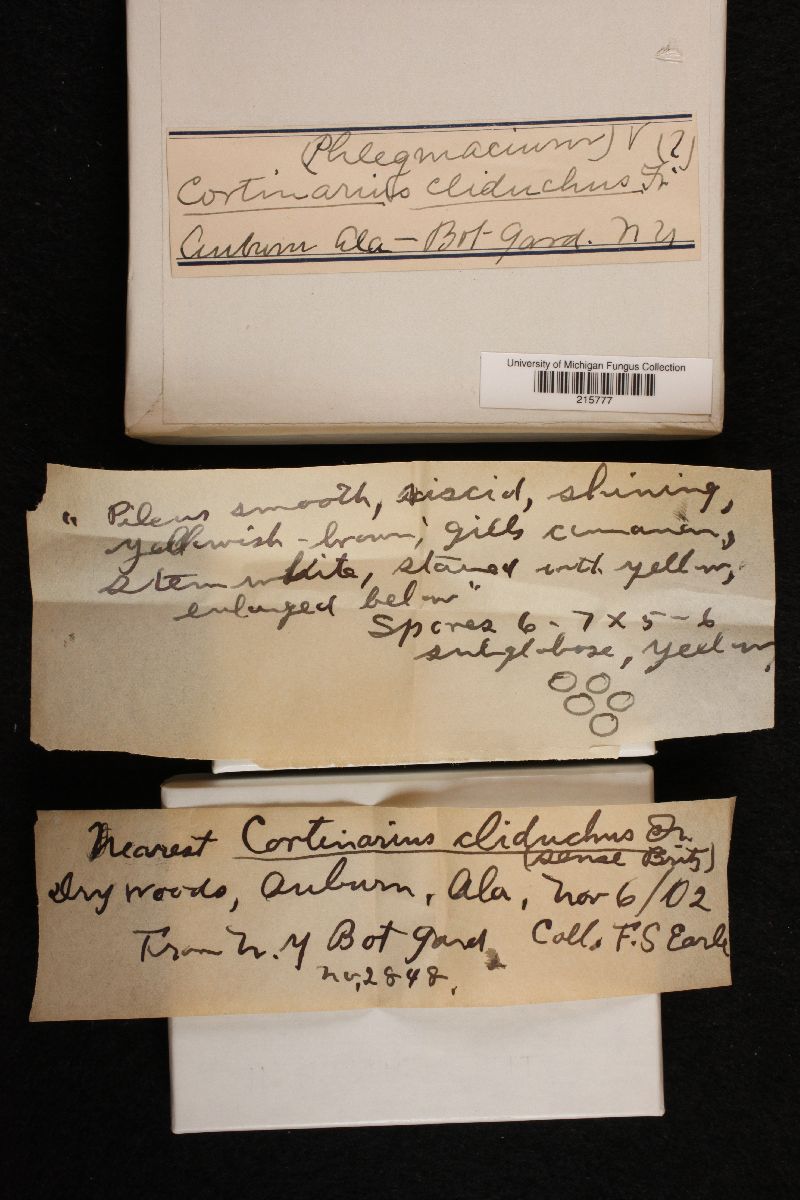 (Phlegmacium) V (?)
Cortinarius cliduchus Fr.
Auburn Ala – Bot Gard. N Y
University of Michigan Fungus Collection
215777
" Pileus smooth, viscid, shining,
yellowish-brown; gills cinnamon,
stem white, stained with yellow,
enlarged below"
Spores 6-7 x 5-6
subglobose, yellow,
Nearest Cortinarius cliduchus Fr.
(sense Britz)
Dry woods, Auburn, Ala, Nov 6/02
From N. Y Bot Gard Coll. F.S Earle
No, 2848.